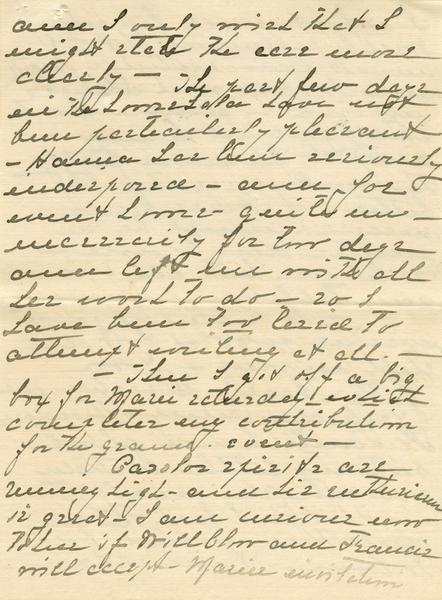 and I only wish that I
might state the case more
clearly — The past few days
in the household have not
been particularly pleasant
— Hanna has been seriously
indisposed — and for
went home quite un-
necessarily for two days
and left me with all
her work to do — so I
have been too tired to
attempt writing at all. —
— Then I got off a big
box for Marie yesterday which
completes my contribution
for the grand event —
spirits are
running high — and his enthusiasm
is great — I am curious now
to hear if Will blow and Francis
will accept — Marie's invitation